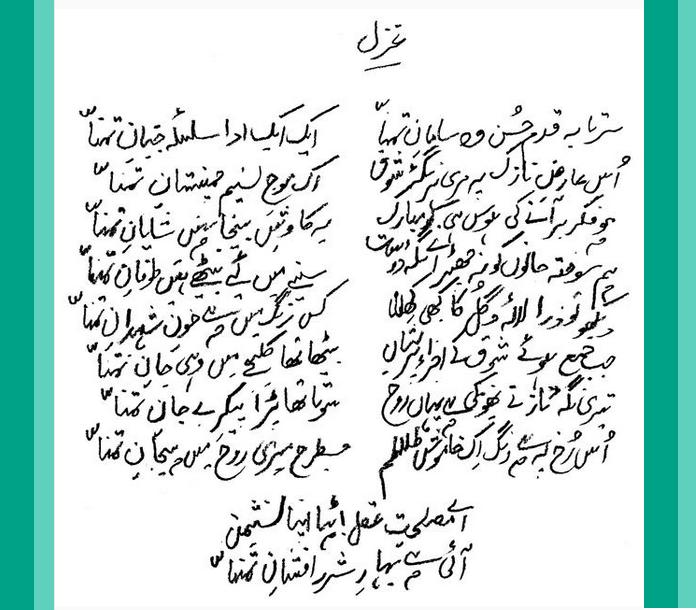 غزل
سر تا بہ قدم حُسن وہ سامانِ تمنّا ایک ایک ادا سلسلۂ جنبانِ تمنّا
اُس عارضِ نازک پہ مری شوق اک موجِ نسیمِ چمنستانِ تمنّا
ہو فکر بر آنے کی ہوس ہی کو مبارک یہ کاوش بیجا نہیں شایانِ تمنّا
ہم سوختہ جانوں کو نہ چھیڑ اے نگہ دوست سینے میں لئے بیٹھے ہیں طوفانِ تمنّا
دیکھو تو ذرا لالہ و گُل کا بھی کھلنا کس رنگ میں ہے خونِ شہیدانِ تمنّا
جب جمع ہوئے شوق کے اجزاء پریشاں بیٹھا تھا کلیجے میں وہی جانِ تمنّا
تیری نگہ ناز نے پھونکی ہے یہاں روح سونا تھا پڑا پیکر بے جانِ تمنّا
اُس رُخ پہ ہے رنگ اِک خاموش تلاطم جسطرح میری روح میں ہیجانِ تمنّا
اے مصلحت عقل اٹھا اپنا نشیمن
آئی ہے بہارِ شرر افشانِ تمنّا